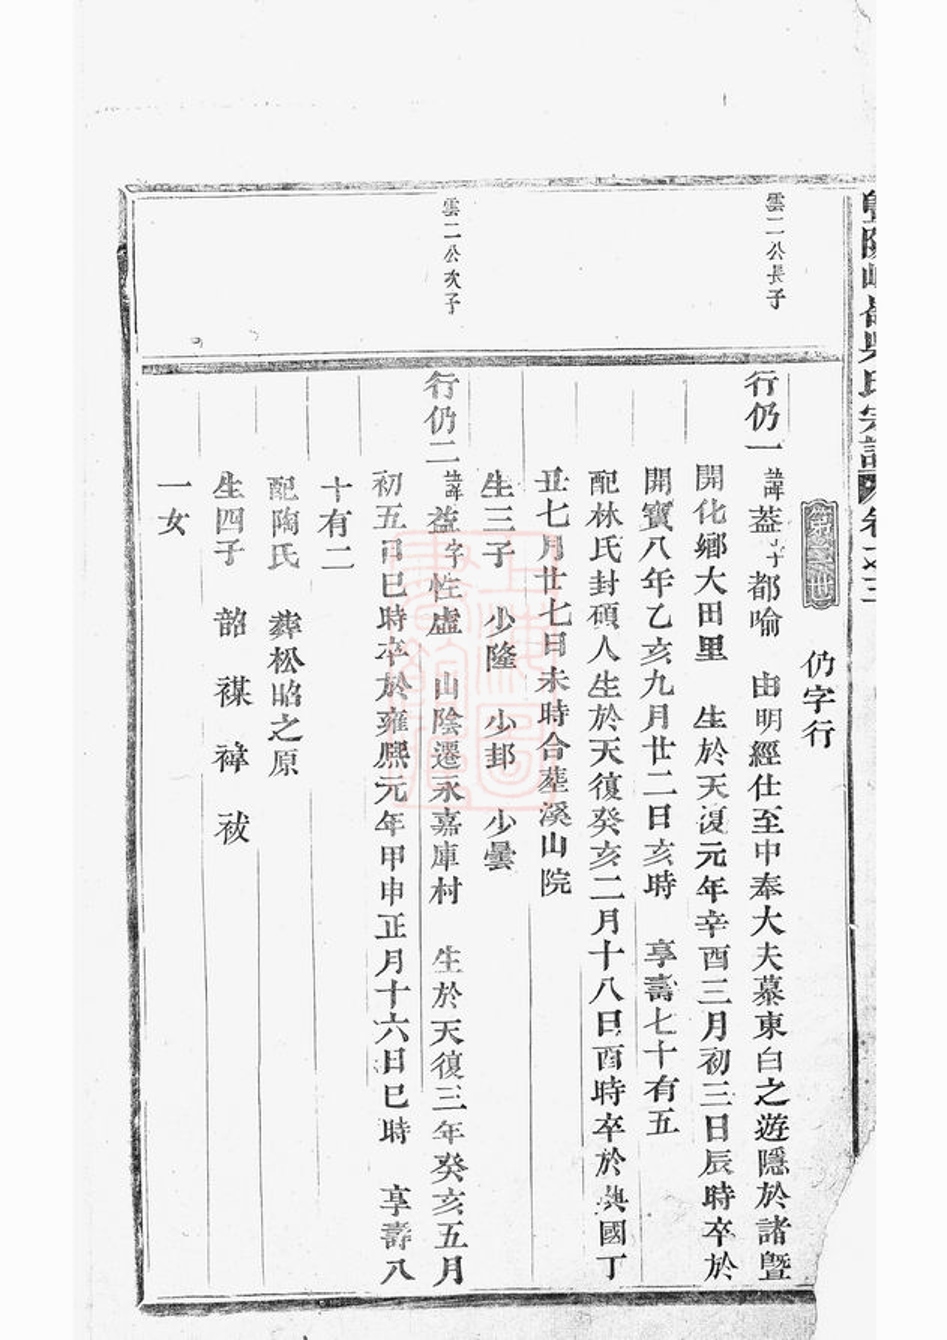 暨陽 吳氏宗譜 卷之三
第三世 仍字行
雲二公長子
行仍一 諱蓋字都喻 由明經仕至中奉大夫慕東白之遊隱於諸暨
開化鄉大田里 生於天復元年辛酉三月初三日辰時卒於
開寶八年乙亥九月廿二日亥時 享壽七十有五
配林氏封碩人生於天復癸亥二月十八日酉時卒於興國丁
丑七月廿七日未時合葬溪山院
生三子 少隆 少邽 少曇
雲二公次子
行仍二 諱益字性虛 山陰遷永嘉庫村 生於天復三年癸亥五月
初五日巳時卒於雍熙元年甲申正月十六日巳時 享壽八
十有二
配陶氏 葬松昭之原
生四子 韶 禖 禕 祓
一女